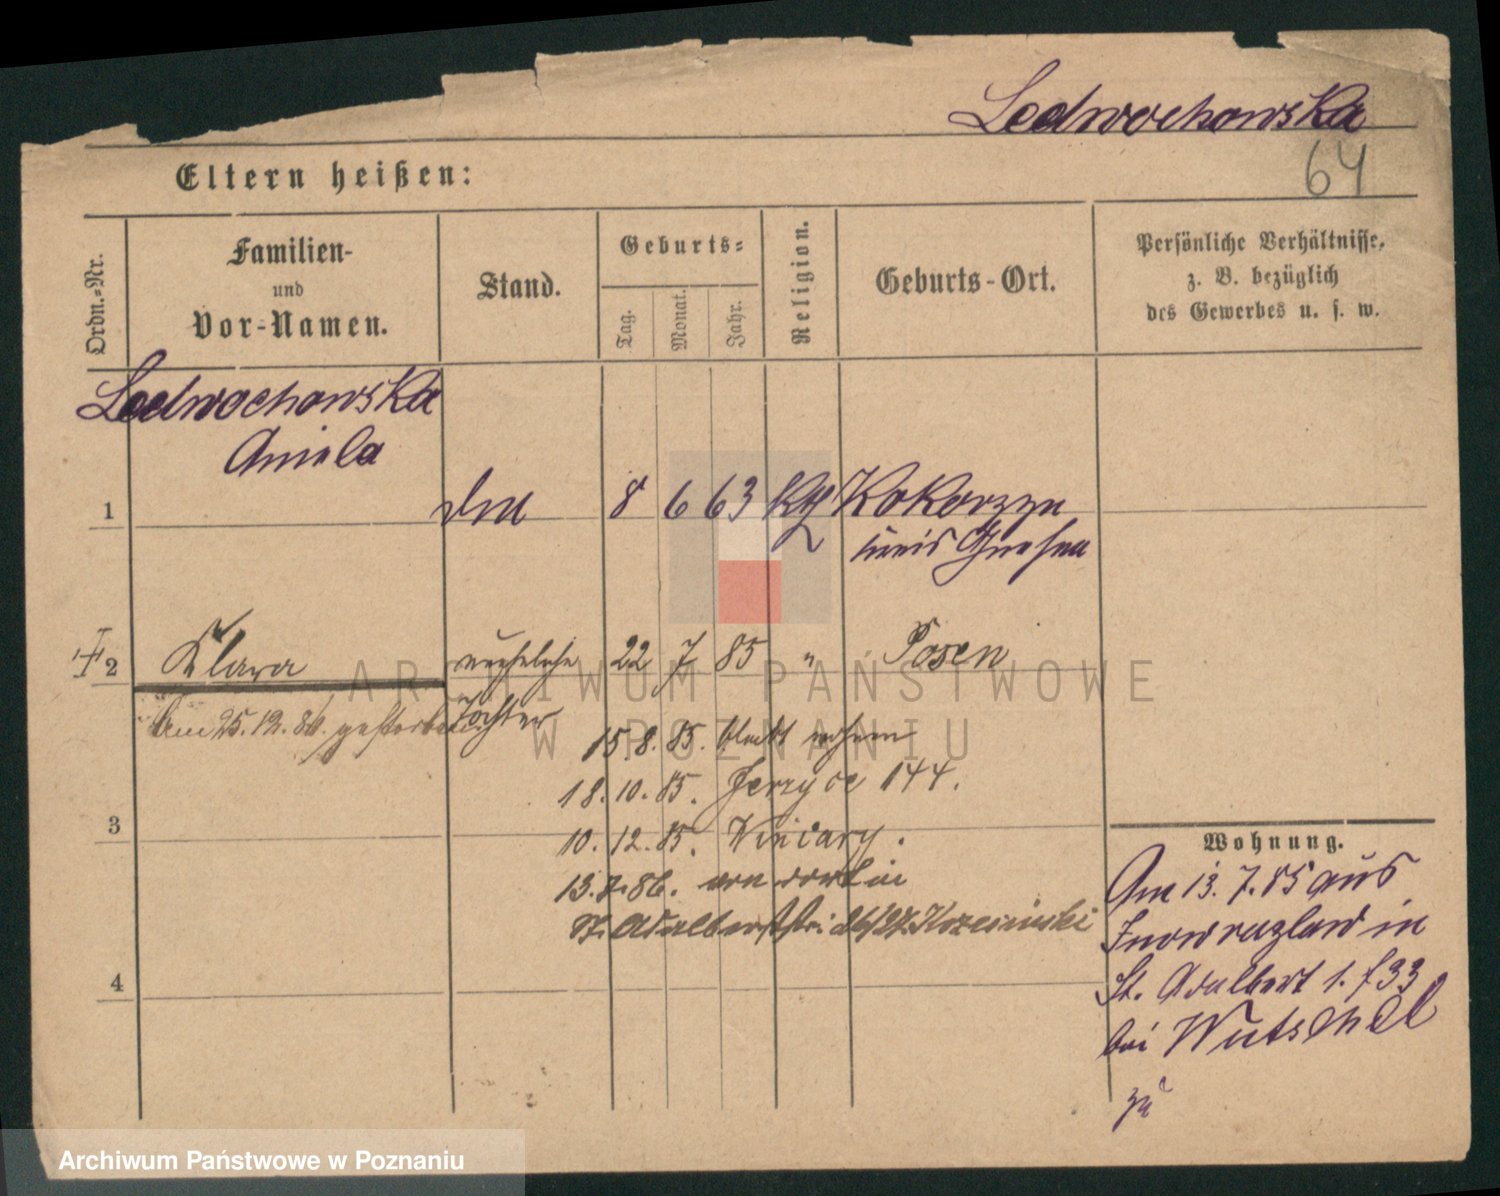 Ledwochowska
64
Eltern heißen:
Ordn.-Nr.
Familien-
und
Vor-Namen.
Stand.
Geburts-
Tag.
Monat.
Jahr.
Religion.
Geburts-Ort.
Persönliche Verhältnisse,
z. B. bezüglich
des Gewerbes u. s. w.
Ledwochowska
Aniela
1 8 6 63 kath Kokorzyn
Kreis
2 Klara uneheliche 22 7 85 " Posen
Tochter
Am 25.12.86. gestorben
15.8.85. bleibt wohnen
18.10.85. Jerzyce 144.
10.12.85. Winiary.
St. Adalbertstr. 26/27.
3
4
Wohnung.
Am 13.7.85 aus
Inowrazlaw in
St. Adalbert 1.
bei Wutschel
zu
ARCHIWUM PAŃSTWOWE
W POZNANIU
Archiwum Państwowe w Poznaniu